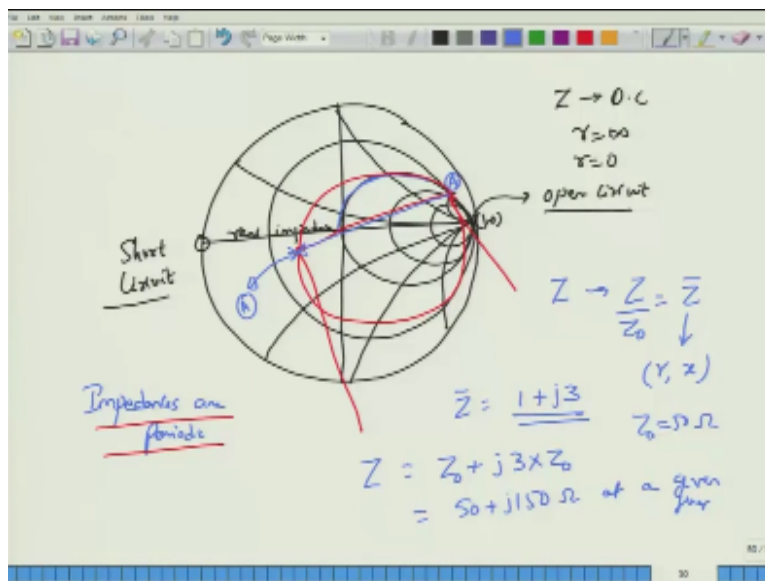 Edit View Insert Actions Tools Help
Page Width
Z → O.C
r=∞
r=0
open circuit
Short
Circuit
real
(A)
Z → Z/Z₀ = z̄
(r, x)
z̄ = 1+j3
Z₀=50 Ω
Impedances are
periodic
Z = Z₀ + j3×Z₀
= 50+j150 Ω at a given
freq